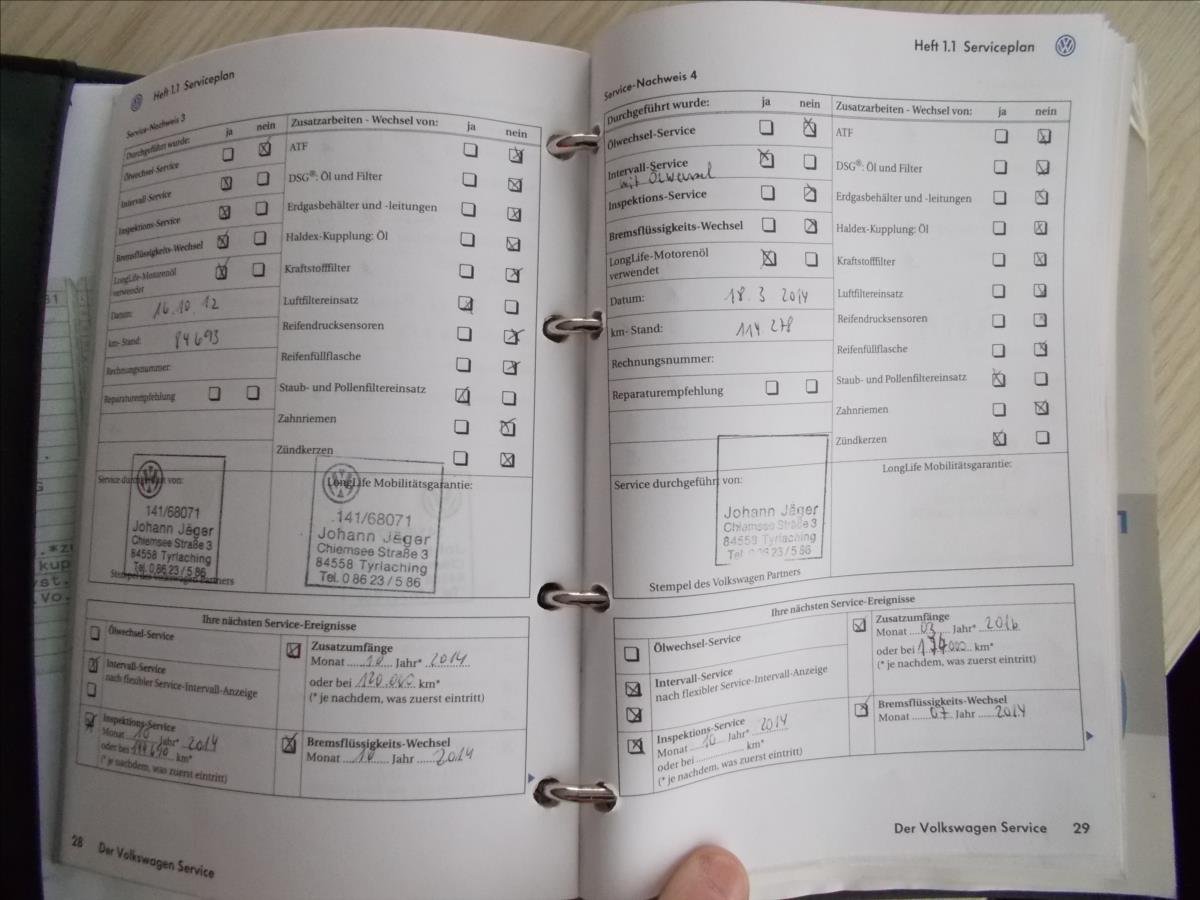 Heft 1.1 Serviceplan
Service-Nachweis 3
Durchgeführt wurde: ja nein
Ölwechsel-Service
Intervall-Service
Inspektions-Service
Bremsflüssigkeits-Wechsel
LongLife-Motorenöl
verwendet
Datum: 16.10.12
km- Stand: 84693
Rechnungsnummer:
Reparaturempfehlung
Zusatzarbeiten - Wechsel von: ja nein
ATF
DSG®: Öl und Filter
Erdgasbehälter und -leitungen
Haldex-Kupplung: Öl
Kraftstofffilter
Luftfiltereinsatz
Reifendrucksensoren
Reifenfüllflasche
Staub- und Pollenfiltereinsatz
Zahnriemen
Zündkerzen
Service durchgeführt von:
141/68071
Johann Jäger
Chiemsee Straße 3
84558 Tyrlaching
Tel. 0 86 23 / 5 86
Stempel des Volkswagen Partners
LongLife Mobilitätsgarantie:
141/68071
Johann Jäger
Chiemsee Straße 3
84558 Tyrlaching
Tel. 0 86 23 / 5 86
Ihre nächsten Service-Ereignisse
Ölwechsel-Service
Intervall-Service
nach flexibler Service-Intervall-Anzeige
Inspektions-Service
Monat 10 Jahr* 2014
oder bei km*
(* je nachdem, was zuerst eintritt)
Zusatzumfänge
Monat 10 Jahr* 2014
oder bei 120.000 km*
(* je nachdem, was zuerst eintritt)
Bremsflüssigkeits-Wechsel
Monat 10 Jahr 2014
28 Der Volkswagen Service
Heft 1.1 Serviceplan
Service-Nachweis 4
Durchgeführt wurde: ja nein
Ölwechsel-Service
Intervall-Service
mit Ölwechsel
Inspektions-Service
Bremsflüssigkeits-Wechsel
LongLife-Motorenöl
verwendet
Datum: 18. 3 2014
km- Stand: 114 278
Rechnungsnummer:
Reparaturempfehlung
Zusatzarbeiten - Wechsel von: ja nein
ATF
DSG®: Öl und Filter
Erdgasbehälter und -leitungen
Haldex-Kupplung: Öl
Kraftstofffilter
Luftfiltereinsatz
Reifendrucksensoren
Reifenfüllflasche
Staub- und Pollenfiltereinsatz
Zahnriemen
Zündkerzen
Service durchgeführt von:
Johann Jäger
Chiemsee Straße 3
84558 Tyrlaching
Tel. 0 86 23 / 5 86
Stempel des Volkswagen Partners
LongLife Mobilitätsgarantie:
Ihre nächsten Service-Ereignisse
Ölwechsel-Service
Intervall-Service
nach flexibler Service-Intervall-Anzeige
Inspektions-Service
Monat 10 Jahr* 2014
oder bei km*
(* je nachdem, was zuerst eintritt)
Zusatzumfänge
Monat 03 Jahr* 2016
oder bei km*
(* je nachdem, was zuerst eintritt)
Bremsflüssigkeits-Wechsel
Monat 07 Jahr 2014
Der Volkswagen Service 29